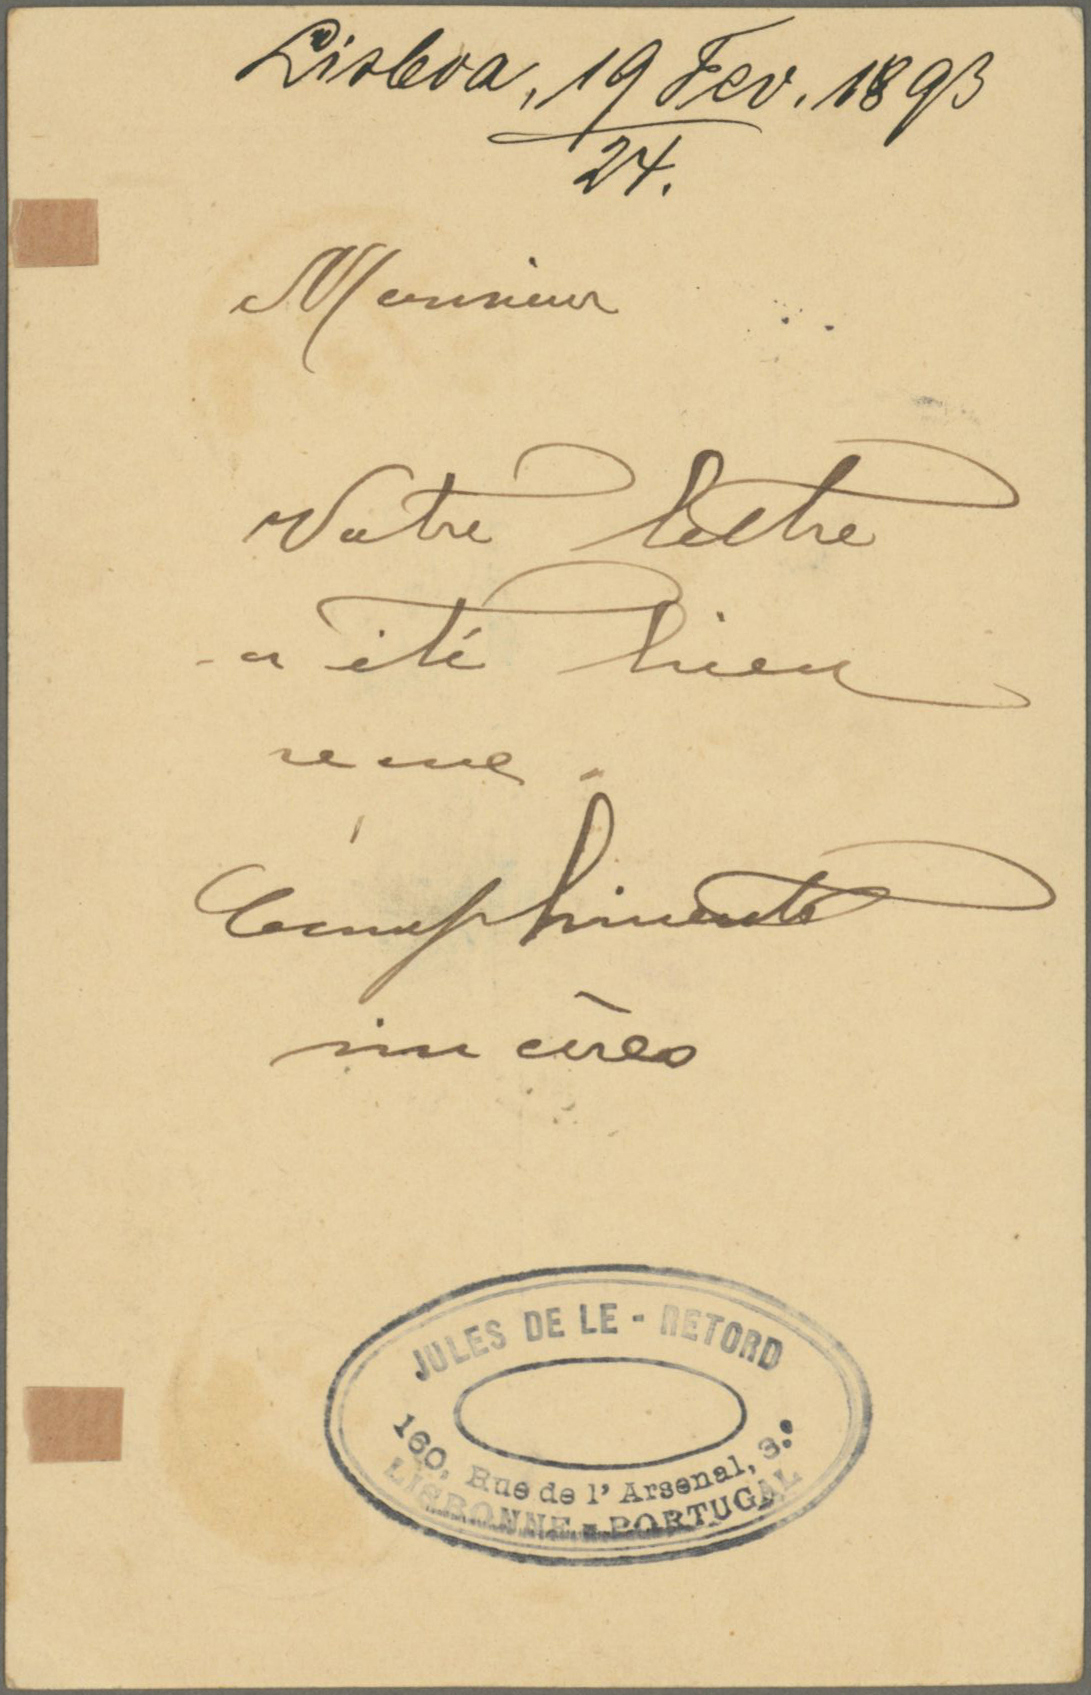 Lisboa, 19 Fev. 1893
24.
Monsieur
Votre lettre
a été bien
reçue.
Compliments
sincères
JULES DE LE - RETORD
160, Rue de l' Arsenal, 3.º
LISBONNE - PORTUGAL